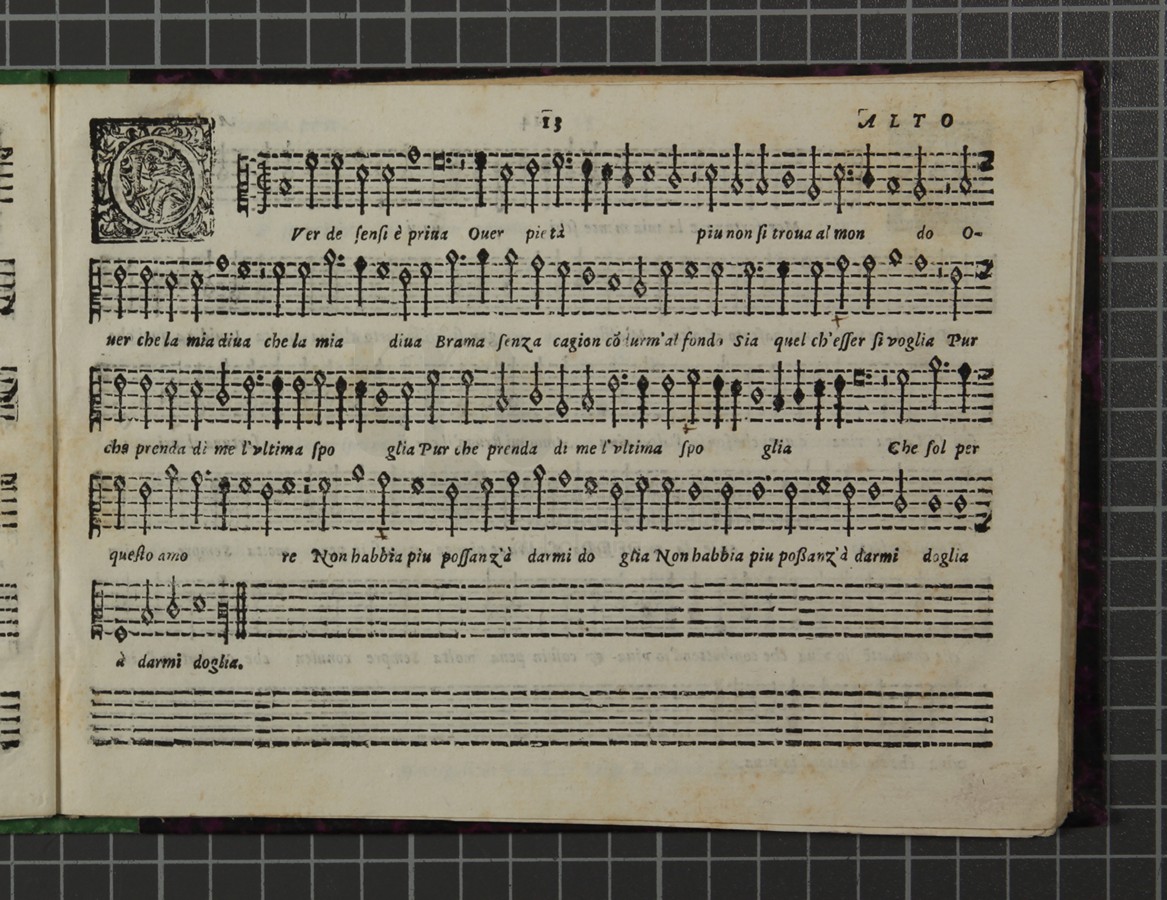 13 ALTO
O Ver de sensi è priua Ouer pietà piu non si troua al mon do O-
uer che la mia diua che la mia diua Brama senza cagion cō durm'al fondo Sia quel ch'esser si voglia Pur
che prenda di me l'vltima spo glia Pur che prenda di me l'vltima spo glia Che sol per
questo amo re Non habbia piu possanz'à darmi do glia Non habbia piu poßanz'à darmi doglia
à darmi doglia.